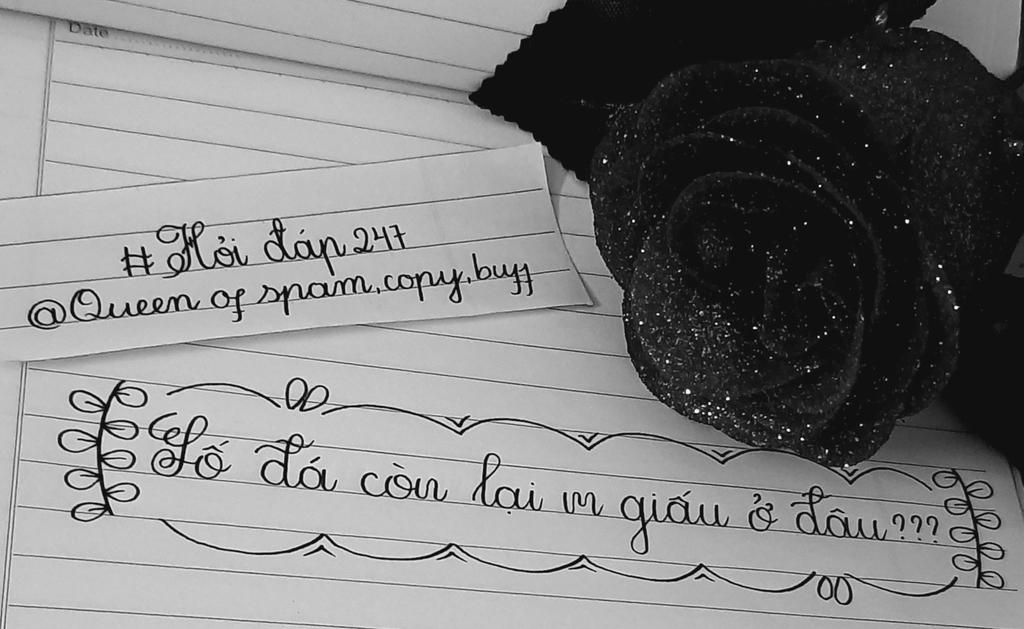 Date
# Hỏi đáp 247
@Queen of spam, copy, buff
Số đá còn lại m giấu ở đâu???